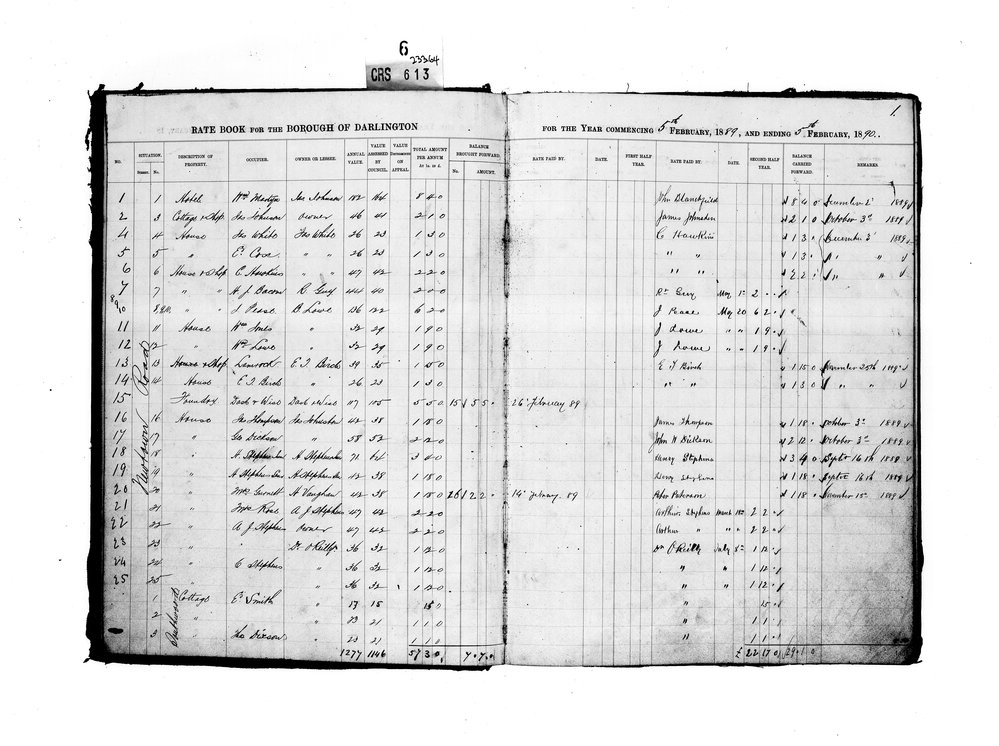 6
23364
CRS 613
1.
RATE BOOK FOR THE BOROUGH OF DARLINGTON
FOR THE YEAR COMMENCING 5th FEBRUARY, 1889, AND ENDING 5th FEBRUARY, 1890.
NO. SITUATION. Street. No. DESCRIPTION OF PROPERTY. OCCUPIER. OWNER OR LESSEE. ANNUAL VALUE. VALUE ASSESSED BY COUNCIL. VALUE ON APPEAL. TOTAL AMOUNT PER ANNUM At 1s. in £. BALANCE BROUGHT FORWARD. No. AMOUNT. RATE PAID BY. DATE. FIRST HALF YEAR. RATE PAID BY. DATE. SECOND HALF YEAR. BALANCE CARRIED FORWARD. REMARKS.
1 1 Hotel Wm Martyn Jas Johnson 182 164 8 4 0 John Blanchfield 8 4 0 December 2 1889
2 3 Cottage & Shop Jas Johnson Owner 46 41 2 1 0 James Johnston 2 1 0 October 3rd 1889
4 4 House Jas White Jas White 26 23 1 3 0 C Hawkins 1 3 December 2 1889
5 5 " E. Coss " " 26 23 1 3 0 " " 1 3 " "
6 6 House & Shop C Hawkins " " 47 42 2 2 0 " " 2 2 " "
7 7 " " H. J. Bacon R Guy 44 40 2 0 0 Rt Guy May 1st 2
8 9 10 8,9,10 " " J Pease B Lowe 136 122 6 2 0 J Pease May 20 6 2 "
11 11 House Wm Jones " 32 29 1 9 0 J Lowe " " 1 9
12 12 " Wm Lowe " 32 29 1 9 0 J Lowe " " 1 9
Newtown Road
13 13 House & Shop E. T. Birch 39 35 1 15 0 E T Birch 1 15 0 November 25th 1889
14 14 House E. T. Birch " 26 23 1 3 0 " " 1 3 0 " "
15 Foundry Dash & Wise Dash & Wise 117 105 5 5 0 15 5 5 26 February 89
16 16 House Jas Thompson Jas Johnston 42 38 1 18 0 James Thompson 1 18 October 3rd 1889
17 17 " Geo Dickson " 58 52 2 12 0 John W Dickson 2 12 October 3rd 1889
18 18 " H Stephens H Stephens 71 64 3 4 0 Henry Stephens 3 4 0 Septr 16th 1889
19 19 " H Stephens H Stephens 42 38 1 18 0 Henry Stephens 1 18 Septr 16th 1889
20 20 " Mrs Gurnett H Vaughan 42 38 1 18 0 26 1 2 2 14 February 89 Peter Paterson 1 18 November 15 1889
21 21 " Mrs Rose A J Stephens 47 42 2 2 0 Arthur Stephens March 18th 2 2
22 22 " A J Stephens Owner 47 42 2 2 0 Arthur " " " 2 2
23 23 " Dr O'Reilly 36 32 1 12 0 Dr O'Reilly July 8th 1 12
24 24 " C Stephens " 36 32 1 12 0 " " 1 12
25 25 " 36 32 1 12 0 " " 1 12
1 Cottage E Smith " 17 15 15 0 " 15
2 " " 23 21 1 1 0 " 1 1
3 " Jas Dixson " 23 21 1 1 0 " 1 1
1277 1146 57 3 0 7 7 0 £ 22 17 0 29 1 0